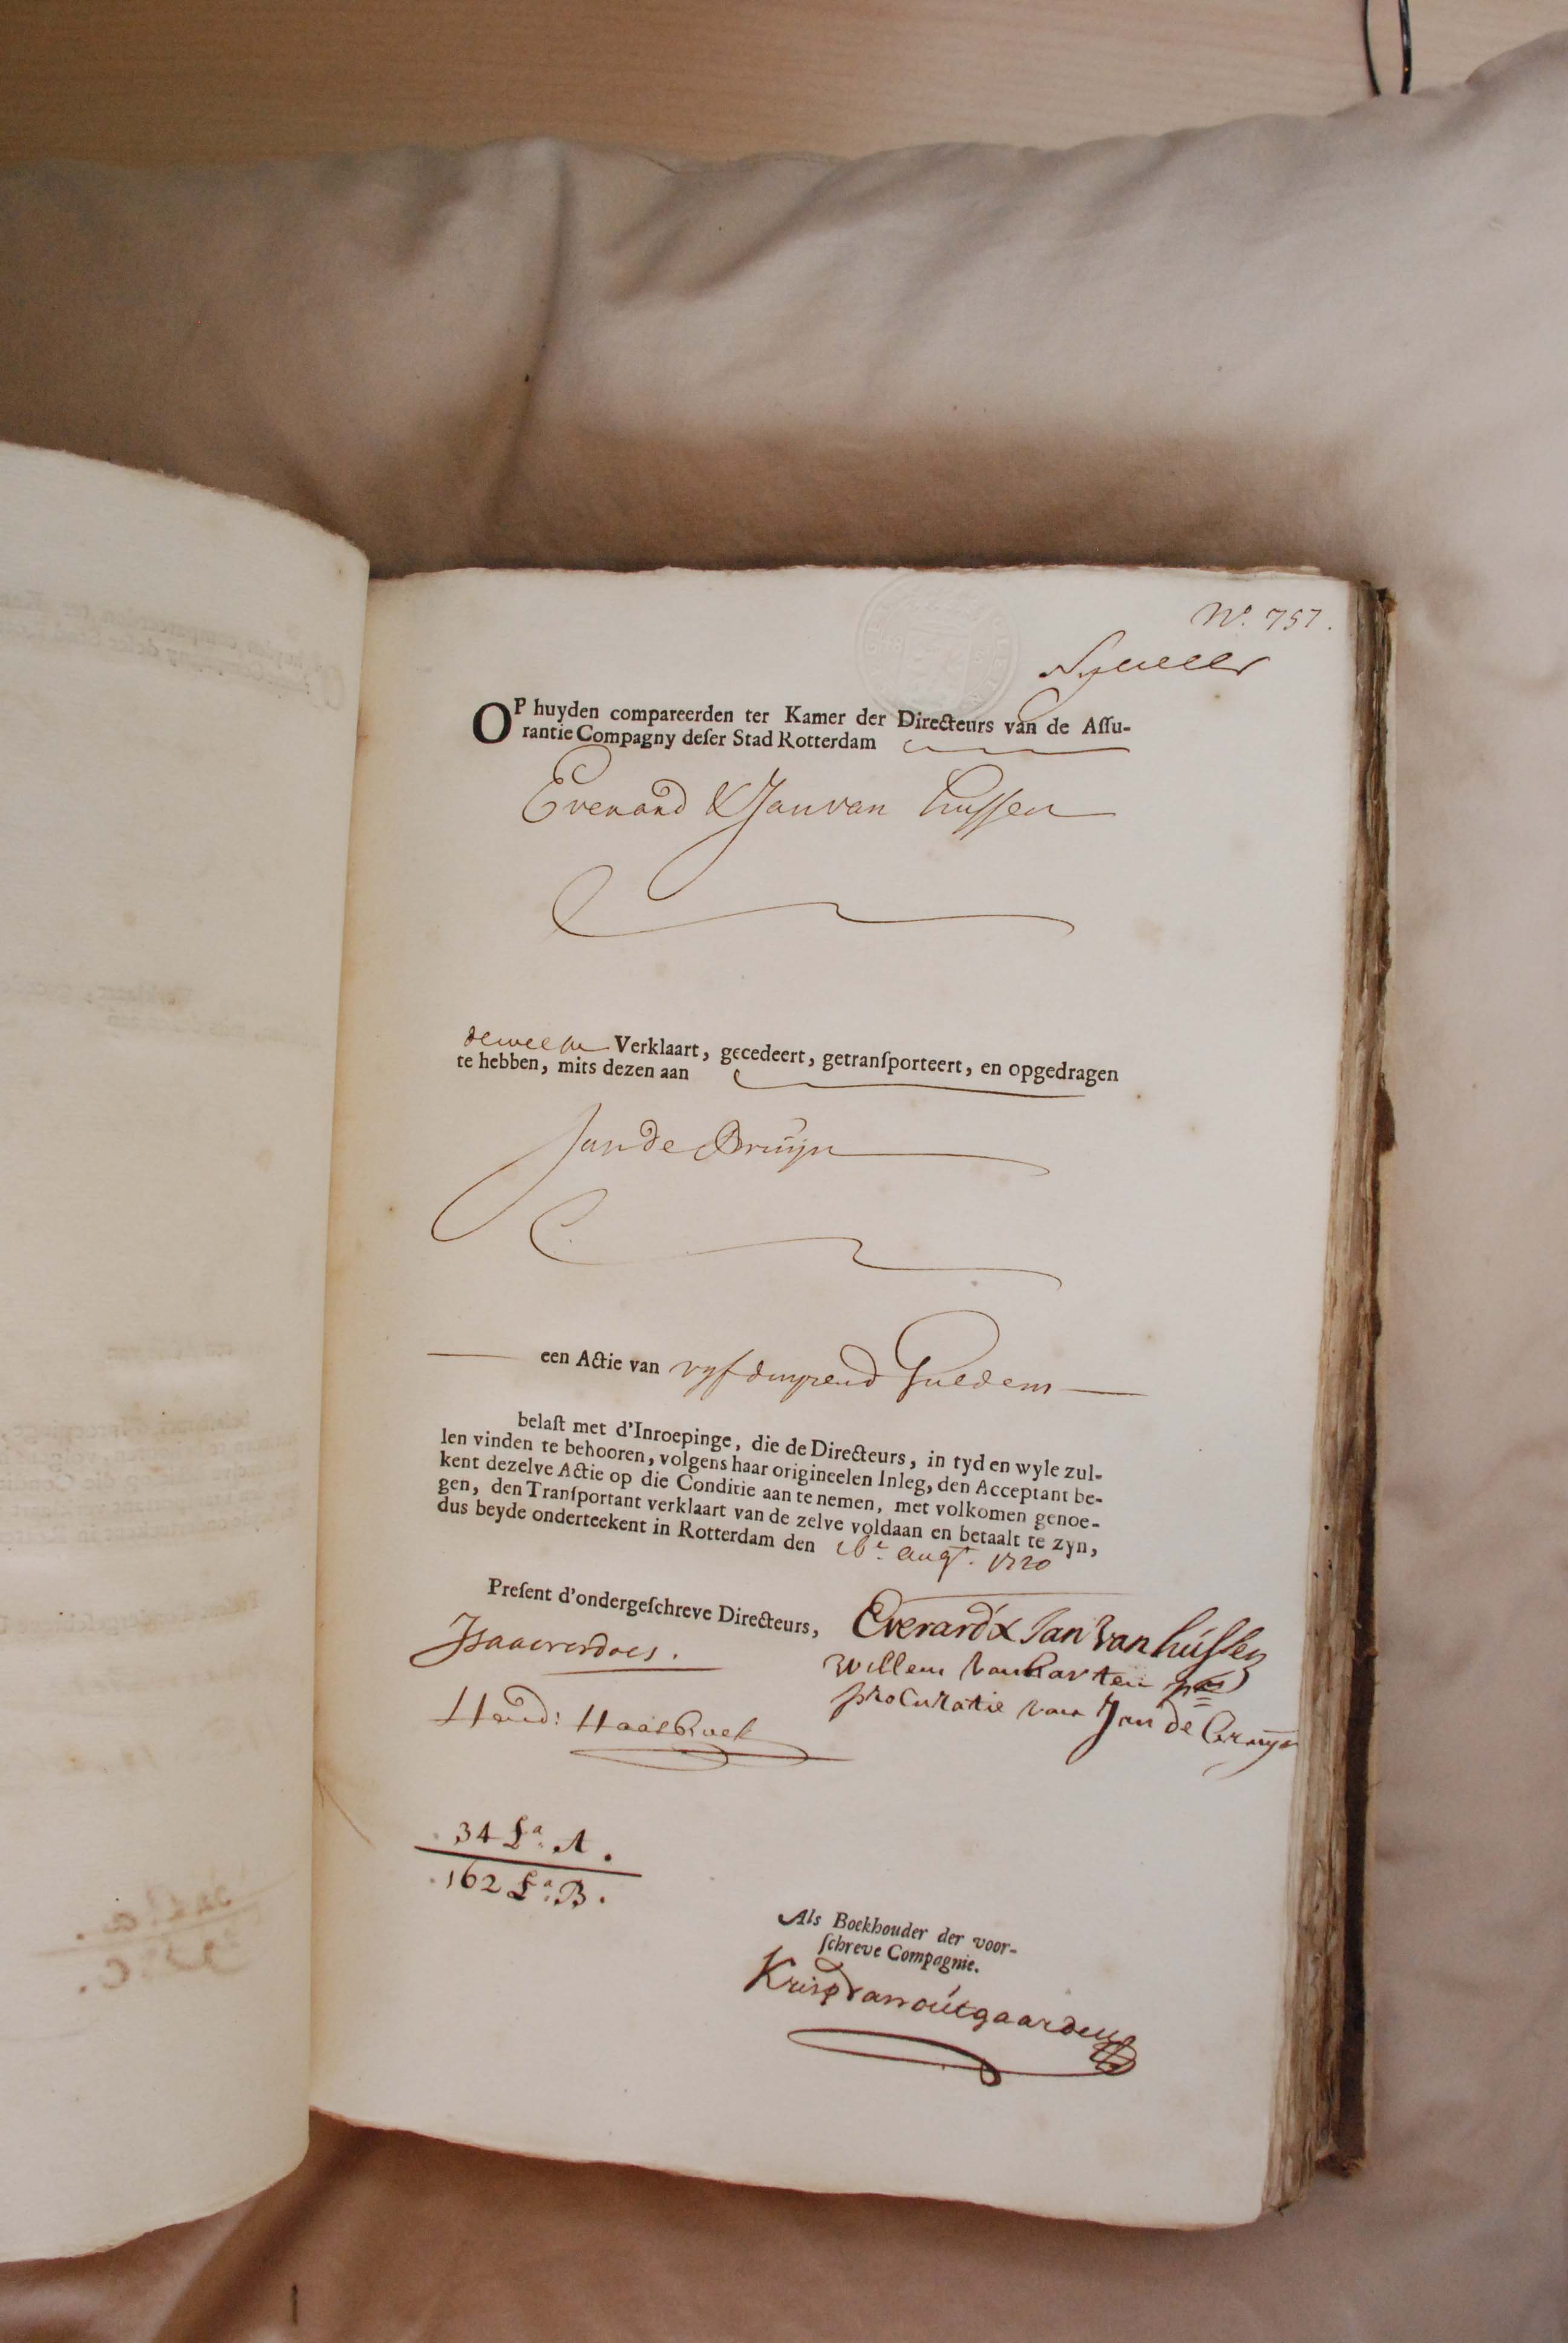 N.º 757.
OP huyden compareerden ter Kamer der Directeurs van de Aſſu-
rantie Compagny deſer Stad Rotterdam
Everard & Jan van hussen
dewelke Verklaart, gecedeert, getranſporteert, en opgedragen
te hebben, mits dezen aan
Jan de Bruijn
een Actie van vyf duyzend Guldens
belaſt met d'Inroepinge, die de Directeurs, in tyd en wyle zul-
len vinden te behooren, volgens haar origineelen Inleg, den Acceptant be-
kent dezelve Actie op die Conditie aan te nemen, met volkomen genoe-
gen, den Tranſportant verklaart van de zelve voldaan en betaalt te zyn,
dus beyde onderteekent in Rotterdam den 16.e augt. 1720
Preſent d'ondergeſchreve Directeurs,
Everard & Jan van hussen
Willem van
procuratie van Jan de Bruijn
34 L.a A.
162 L.a B.
Als Boekhouder der voor-
ſchreve Compagnie.